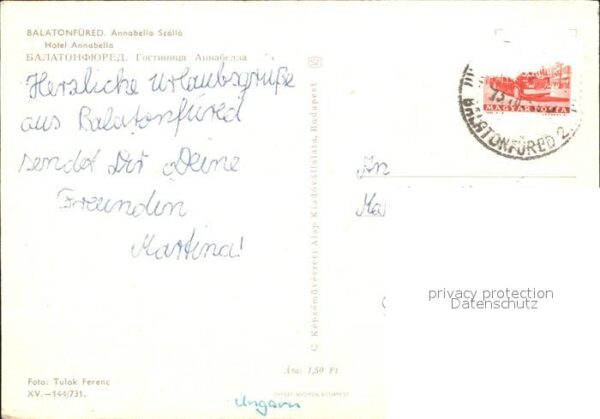 BALATONFÜRED. Annabella Szálló
Hotel Annabella
БАЛАТОНФЮРЕД. Гостиница Аннабелла
Herzliche Urlaubsgrüße
aus Balatonfüred
sendet Dir Deine
Freundin
Martina!
Foto: Tulok Ferenc
XV.—144/731.
© Képzőművészeti Alap Kiadóvállalata, Budapest
Ára: 1,50 Ft
Ungarn
MAGYAR POSTA
BALATONFÜRED 2
An
privacy protection
Datenschutz